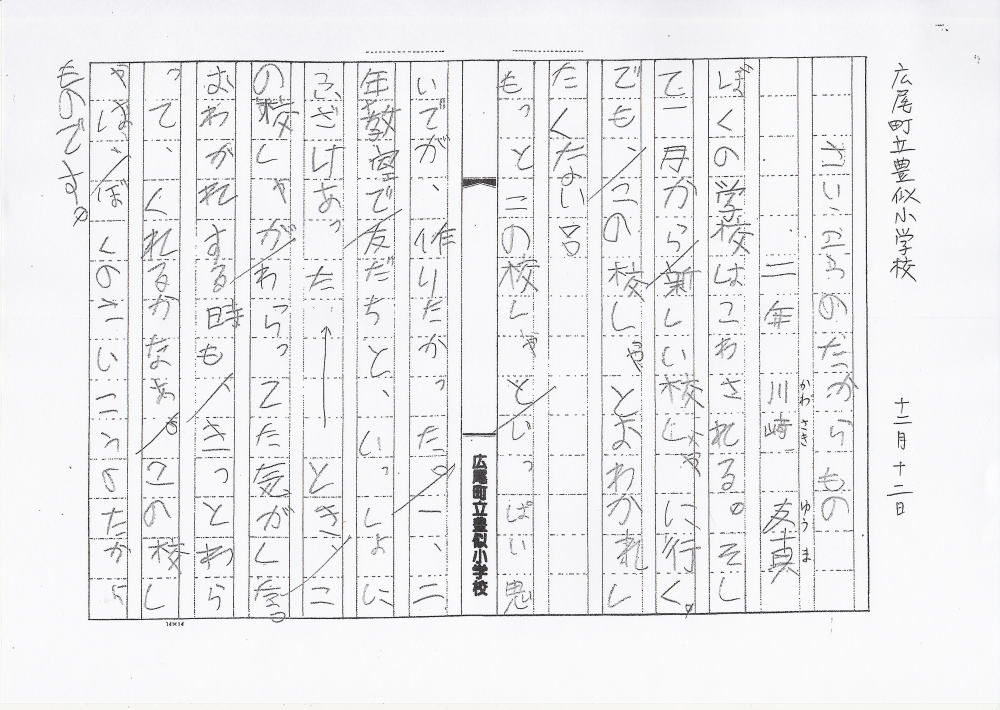 広尾町立豊似小学校　十二月十二日
れいこうのたからもの
二年　川崎　友真
かわさき　ゆうま
ぼくの学校はこわされる。そし
て一月から新しい校しゃに行く。
でも、この校しゃとおわかれし
たくない。
もっとこの校しゃといっぱい思
いでが、作りたかった。一、二
年教室で友だちと、いっしょに
ふざけあった　とき、こ
の校しゃがわらってた気がした。
おわかれする時も、きっとわら
って、くれるかなあ。この校し
ゃは、ぼくのさいこうのたから
ものです。
広尾町立豊似小学校
14×14